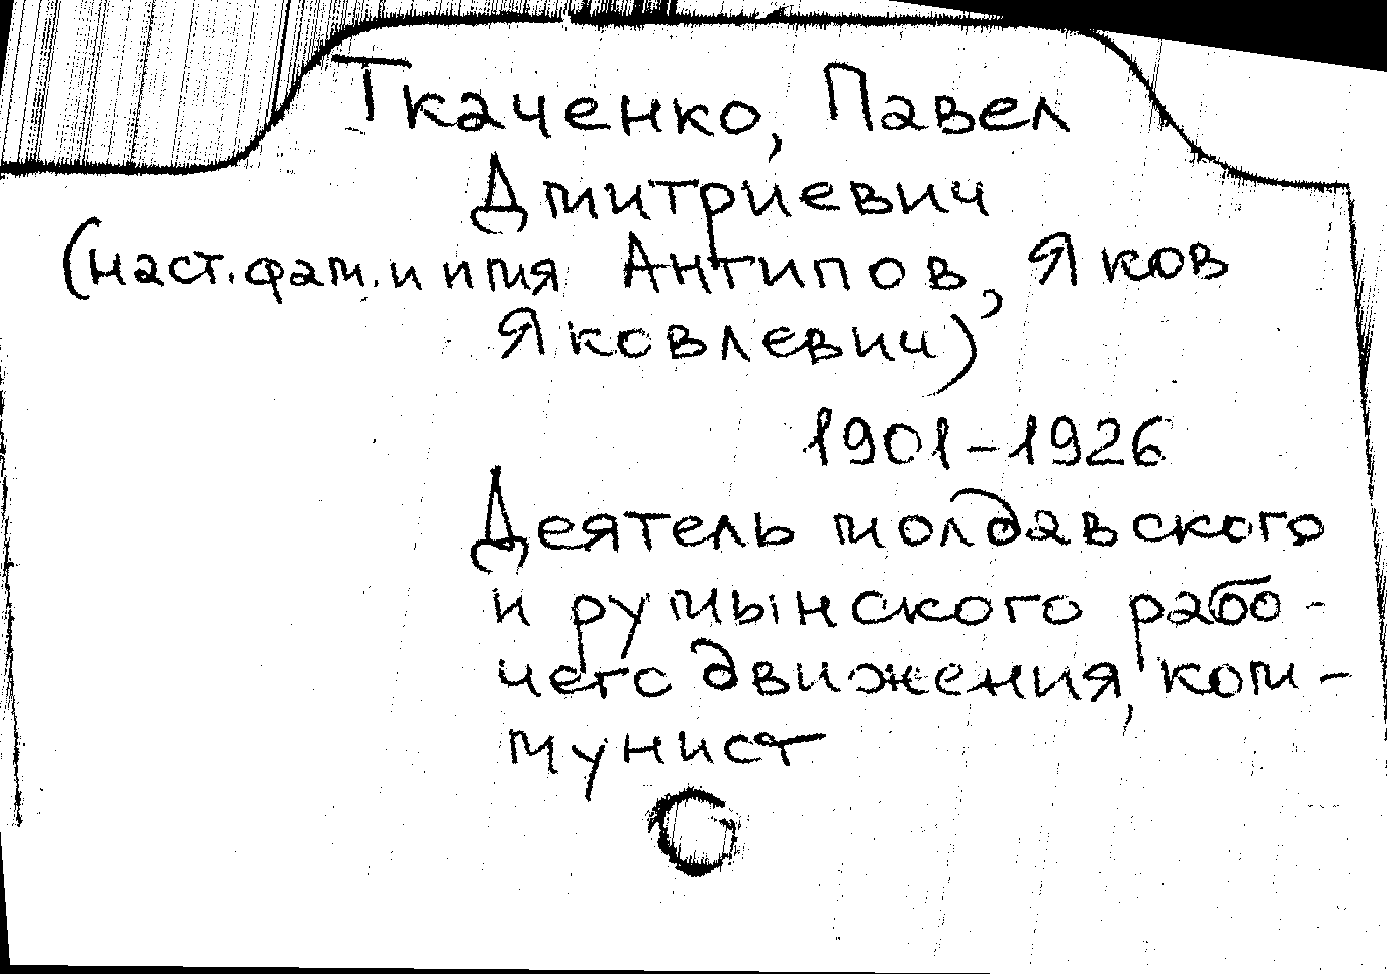 Ткаченко, Павел
Дмитриевич
(наст. фам. и имя Антипов, Яков
Яковлевич)
1901-1926
Деятель молдавского
и румынского рабо-
чего движения, ком-
мунист